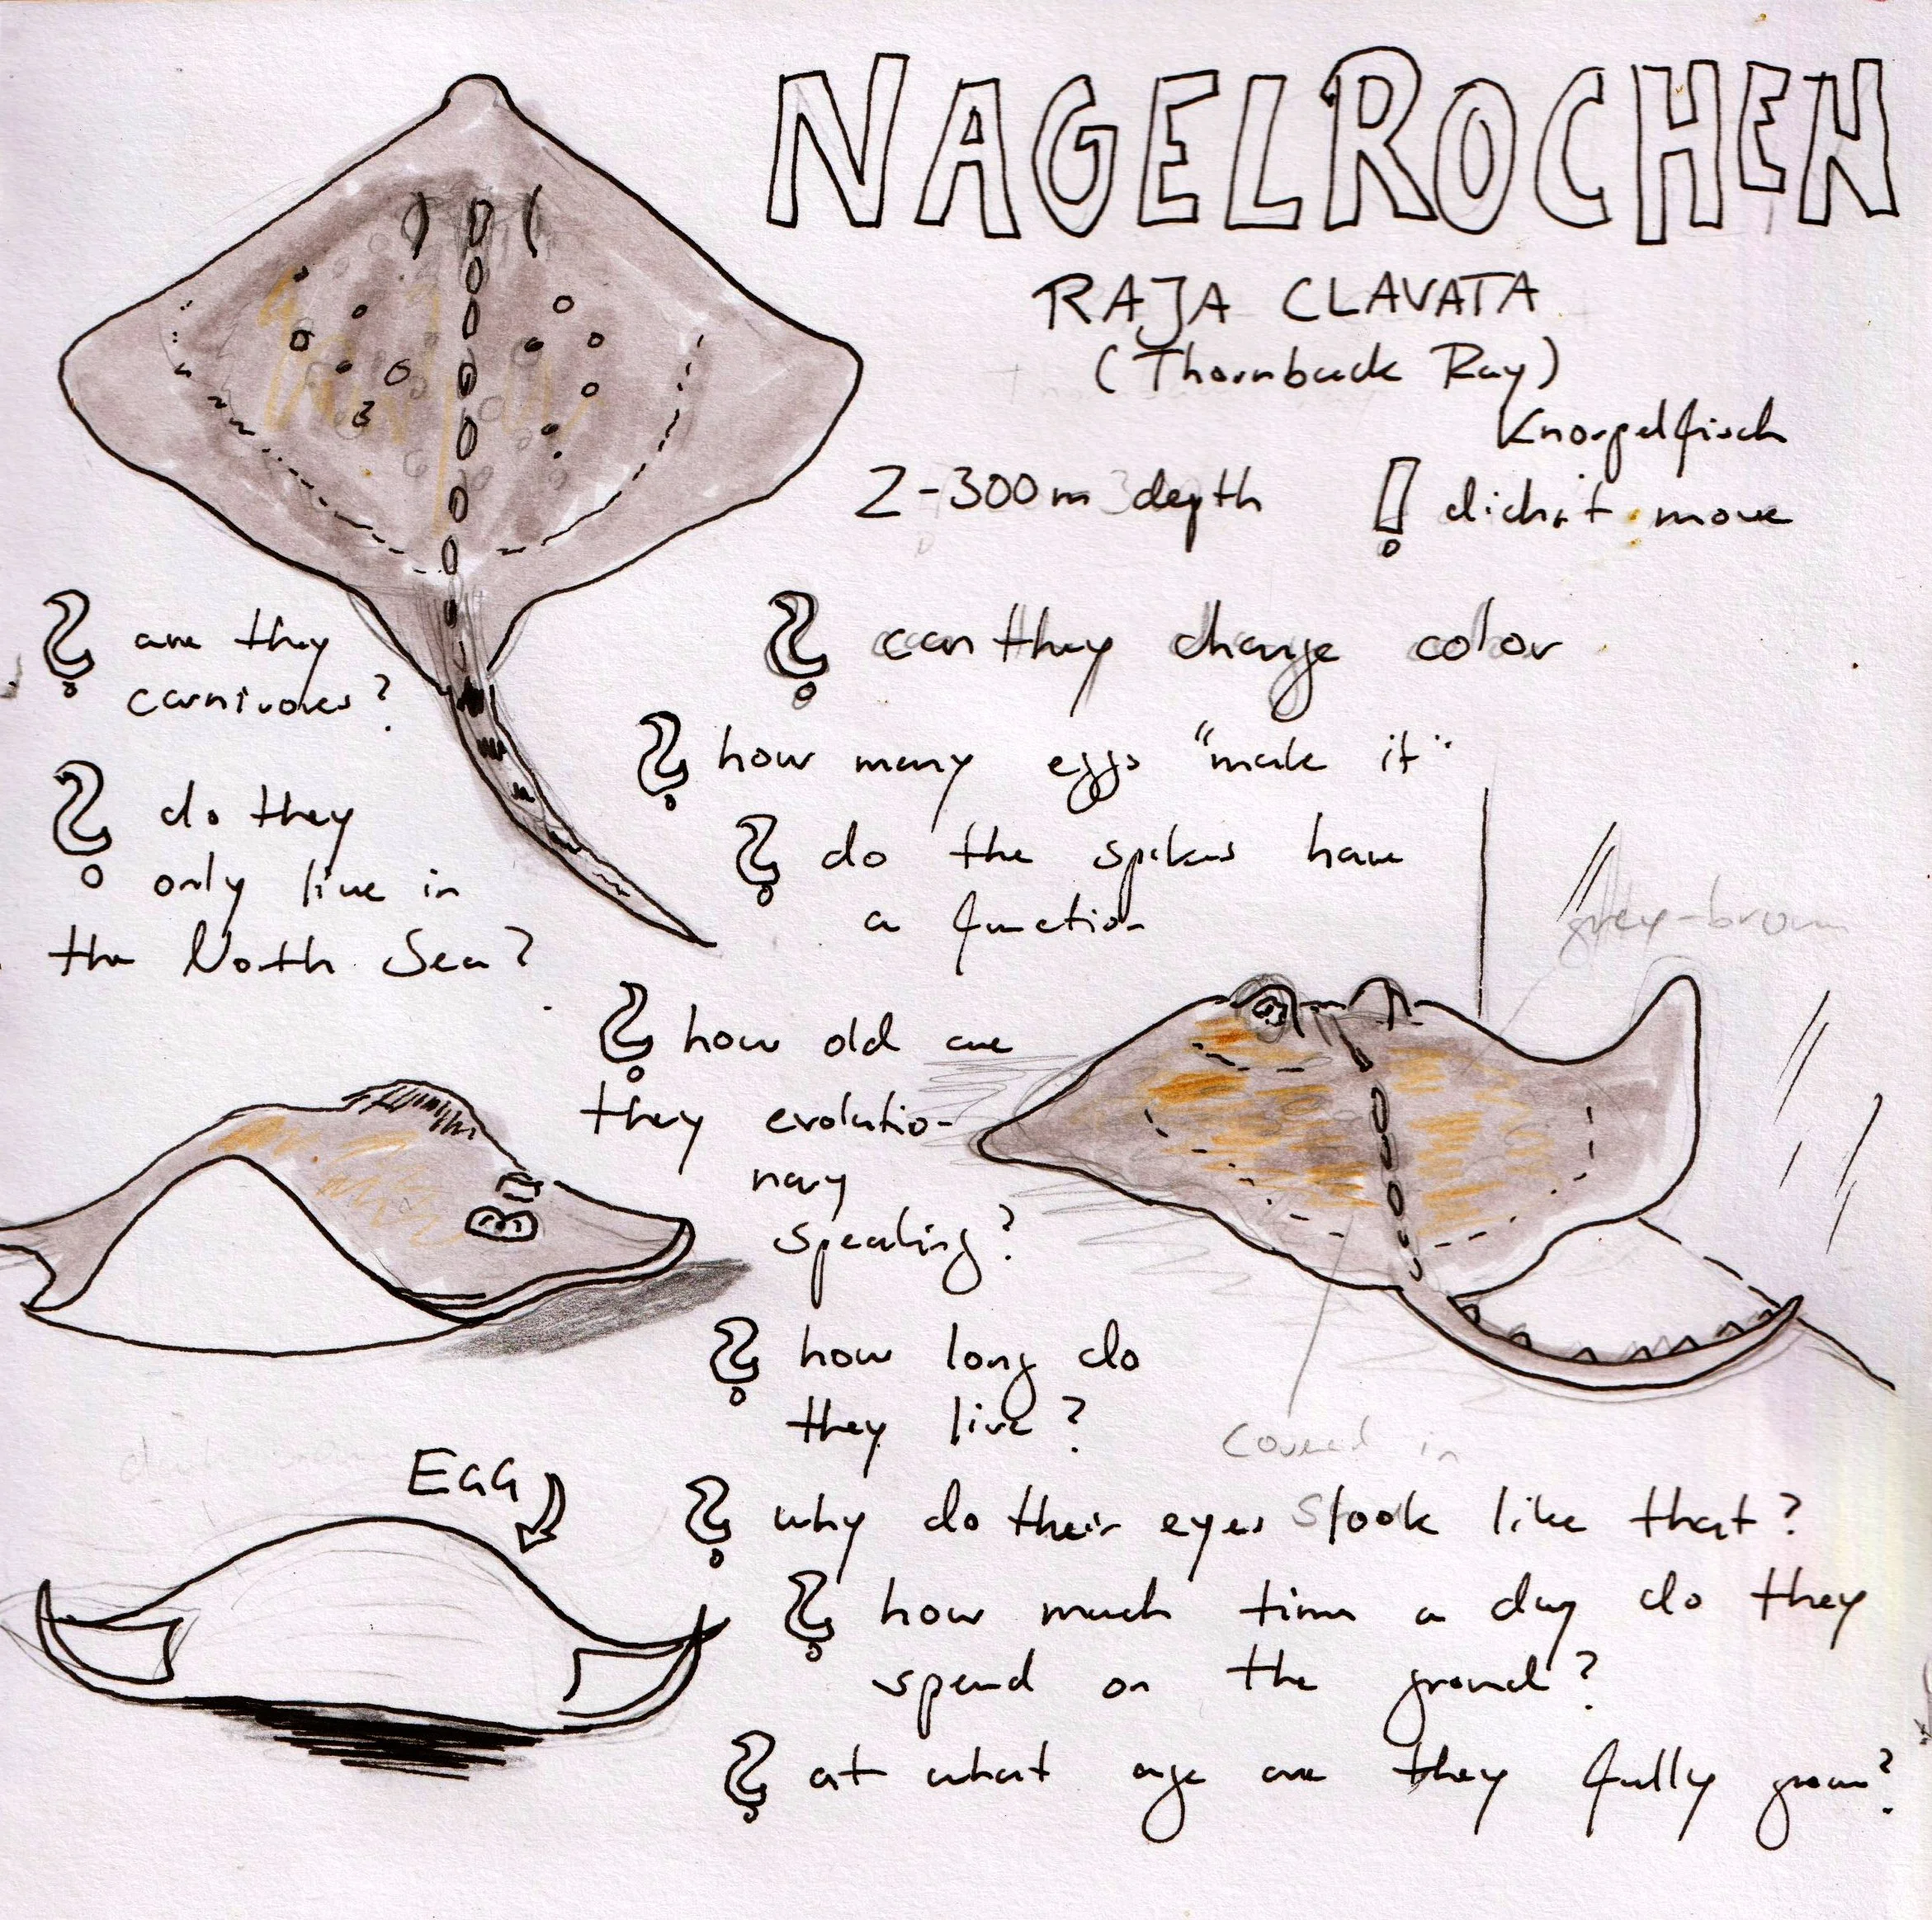 NAGELROCHEN
RAJA CLAVATA
(Thornback Ray)
Knorpelfisch
2-300m depth
! didn't move
? are they
carnivores?
? do they
only live in
the North Sea?
? can they change color
? how many eggs "make it"
? do the spikes have
a function
grey-brown
? how old are
they evolutio-
nary
speaking?
? how long do
they live?
covered in
EGG
? why do their eyes look like that?
? how much time a day do they
spend on the ground?
? at what age are they fully grown?